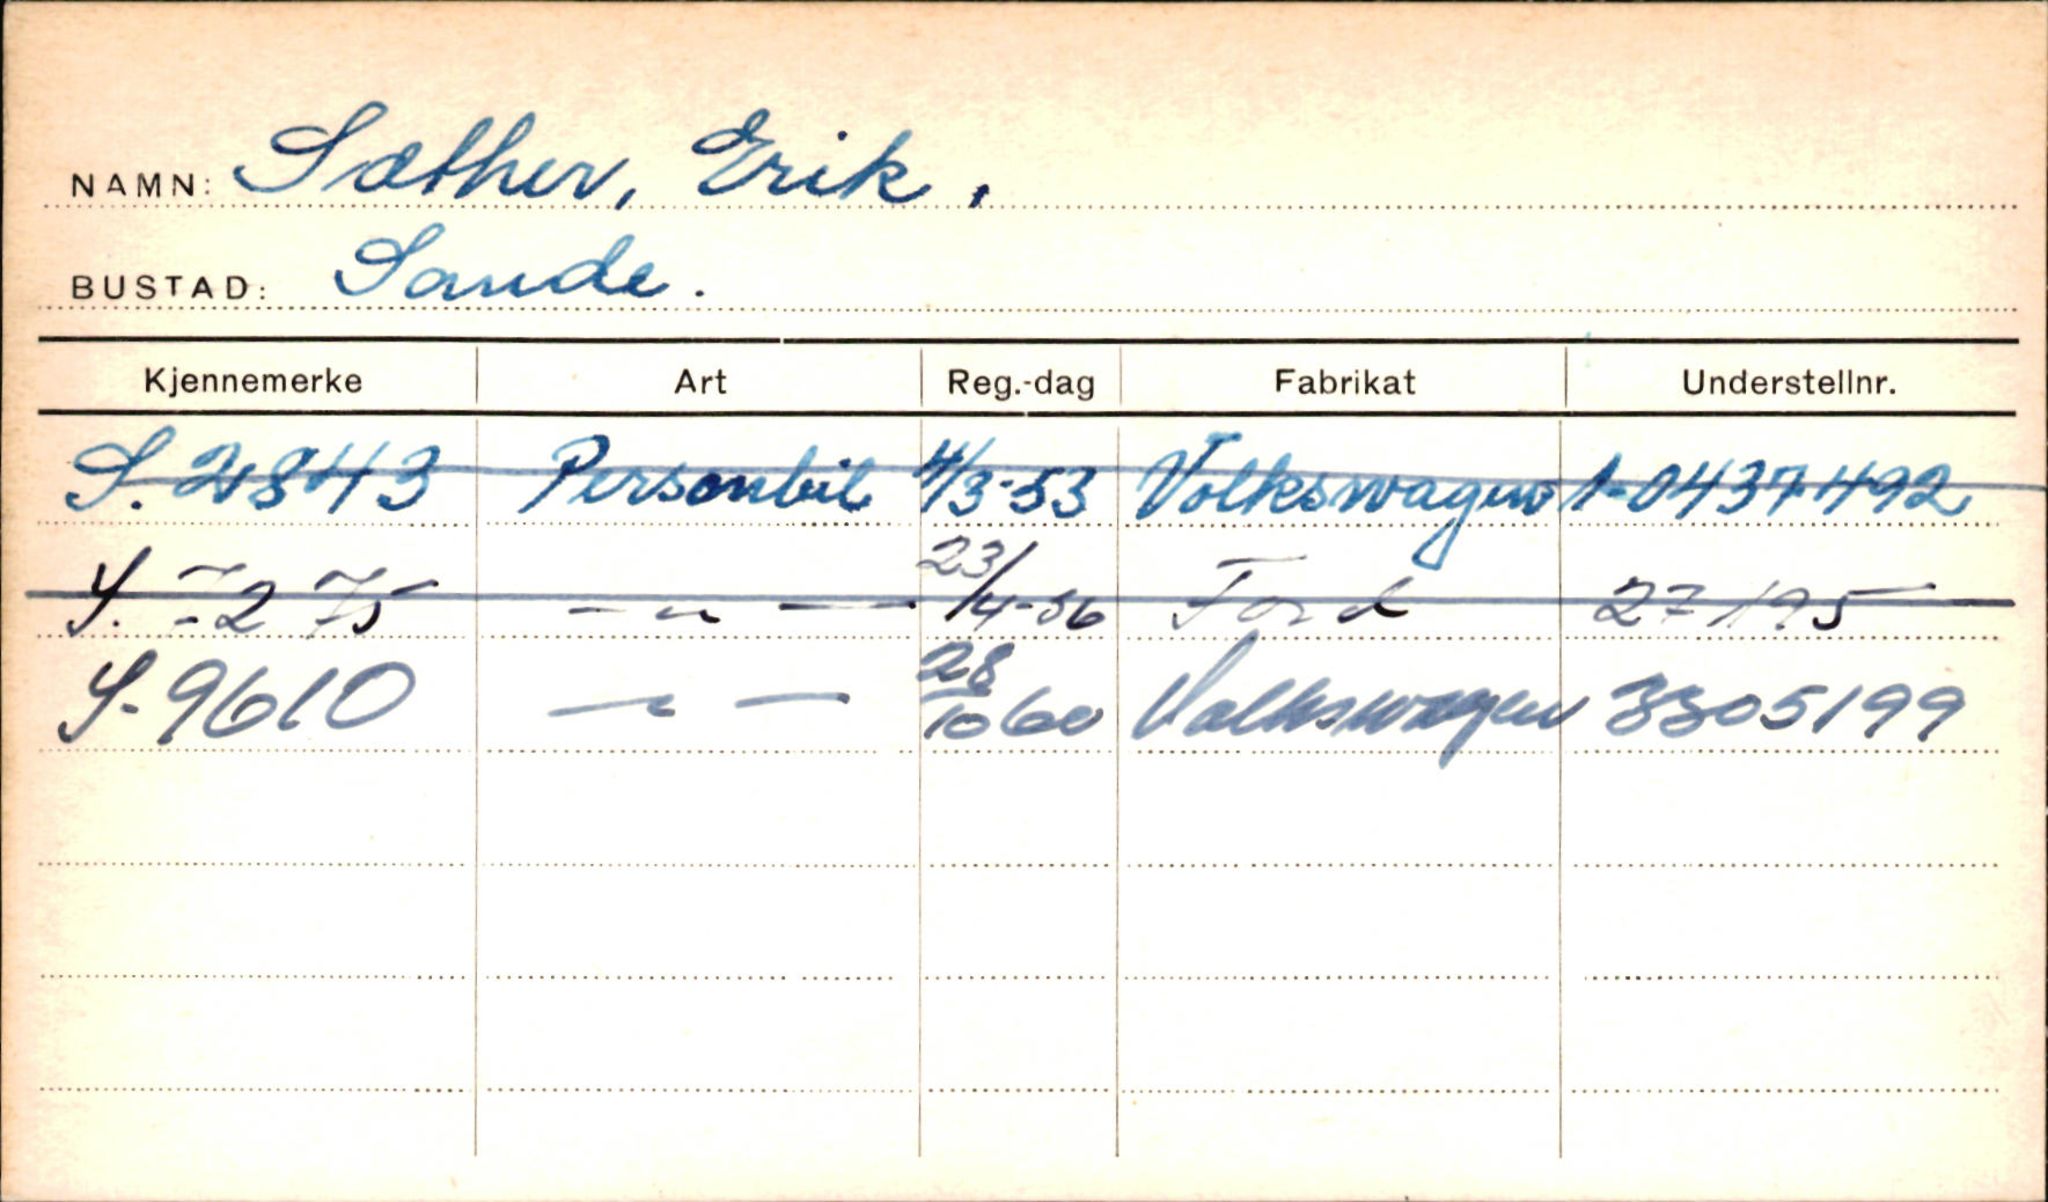 NAMN: Sæther, Erik.
BUSTAD: Sande.
Kjennemerke Art Reg.-dag Fabrikat Understellnr.
S. 2843 Personbil 4/3-53 Volkswagen 1-0437492
S. 7275 — " — 23/4-56 Ford 27195
S-9610 — " — 28/10 60 Volkswagen 3305199